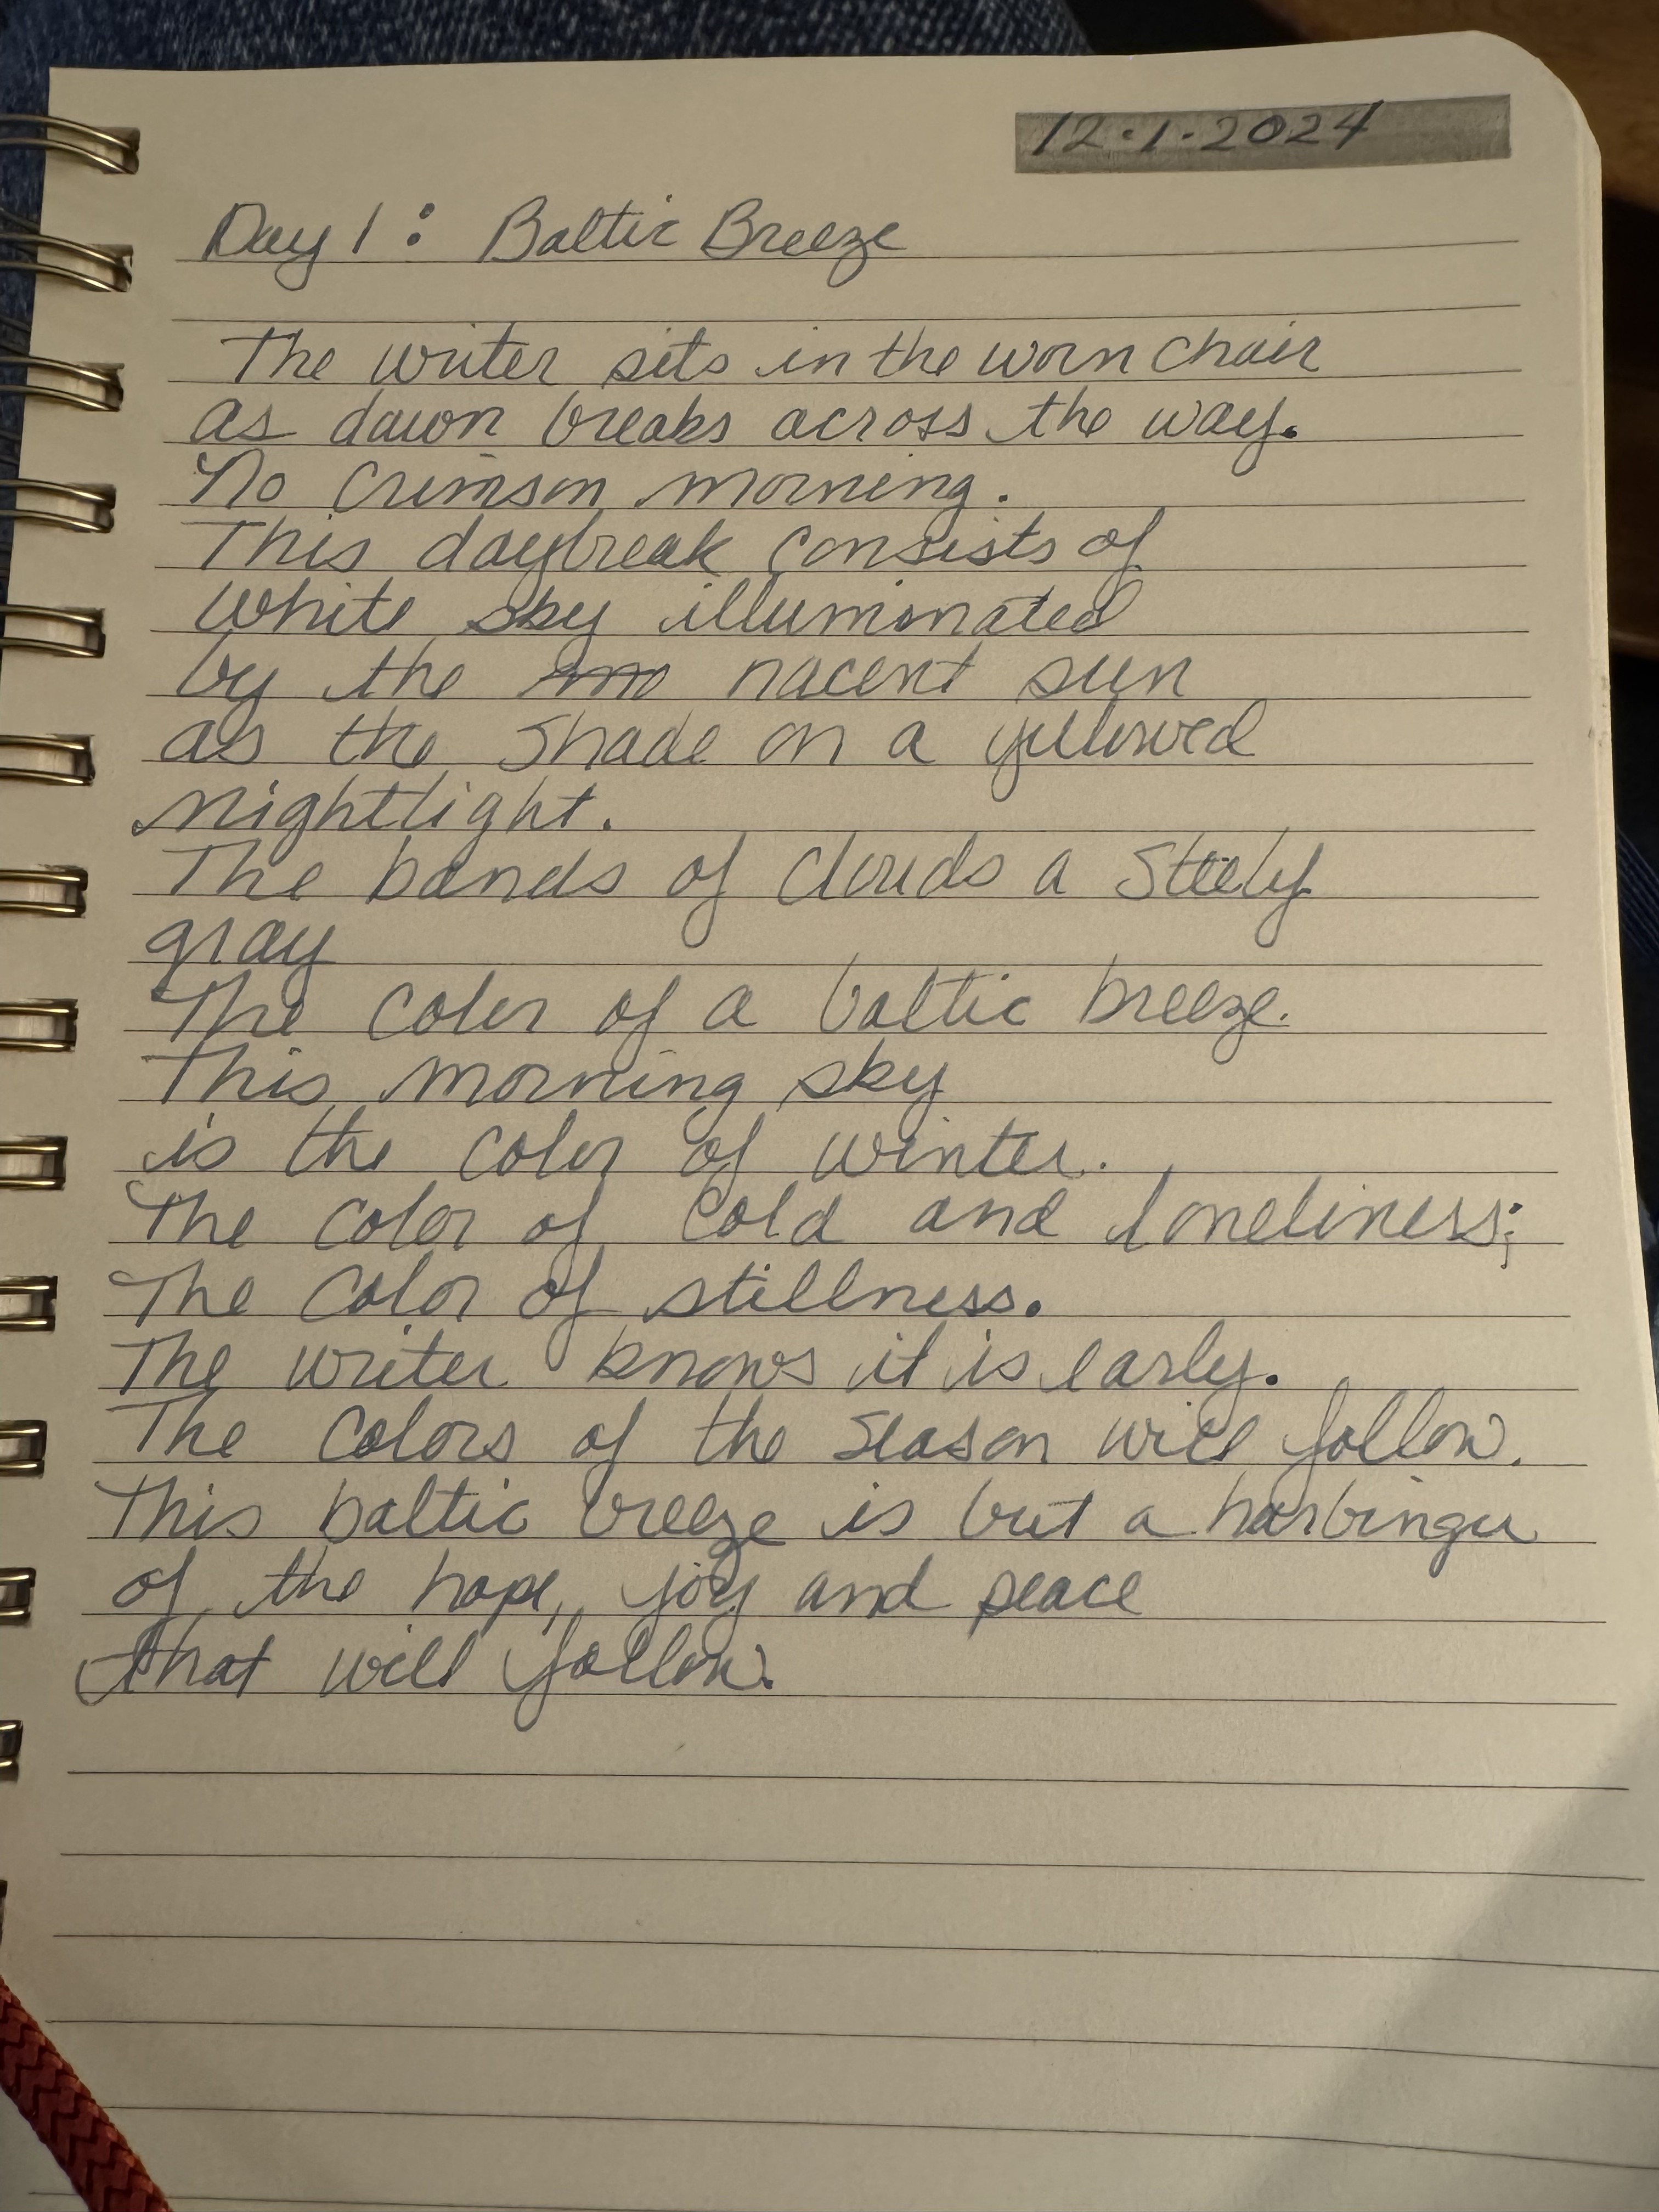 12.1.2024
Day 1: Baltic Breeze
The writer sits in the worn chair
as dawn breaks across the way.
No crimson morning.
This daybreak consists of
white sky illuminated
by the nacent sun
as the shade on a yellowed
nightlight.
The bands of clouds a steely
gray
The color of a baltic breeze.
This morning sky
is the color of winter.
The color of cold and loneliness;
The color of stillness.
The writer knows it is early.
The colors of the season will follow.
This baltic breeze is but a harbinger
of the hope, joy and peace
that will follow.